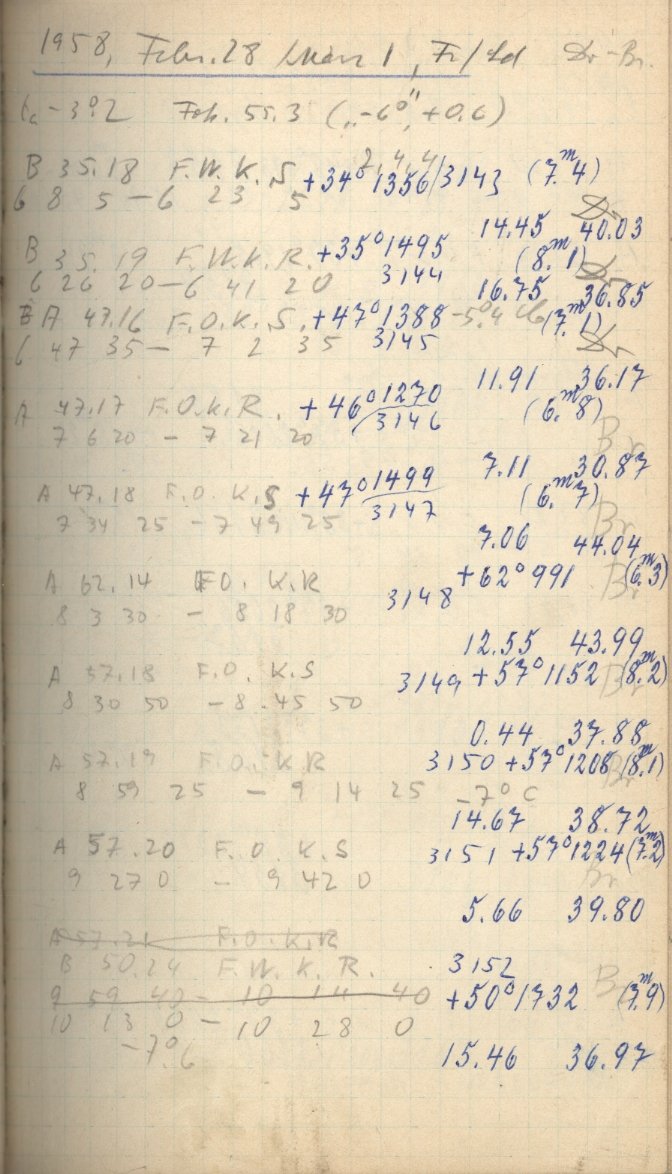 1958, Febr. 28 März 1, Fr/Sd Dr-Br.
-392 Feb. 55.3 (,,-6°", +0.6)
2,4,4
B 35.18 F.W.K.S +34°1356/3143 (7.ᵐ4)
6 8 5 - 6 23 5 Dr
14.45 40.03
B 35.19 F.W.K.R. +35°1495 (8.ᵐ1)
6 26 20 - 6 41 20 3144 Dr
16.75 36.85
A 47.16 F.O.K.S. +47°1388 -5°4 (7.ᵐ1)
6 47 35 - 7 2 35 3145 Dr
11.91 36.17
A 47.17 F.O.K.R. +46°1270 (6.ᵐ8)
7 6 20 - 7 21 20 3146 Br
7.11 30.87
A 47.18 F.O.K.S +47°1499 (6.ᵐ7)
7 34 25 - 7 49 25 3147 Br
7.06 44.04
A 62.14 F.O. K.R +62°991 (6.ᵐ3)
8 3 30 - 8 18 30 3148 Br
12.55 43.99
A 57.18 F.O. K.S 3149 +57°1152 (8.ᵐ2)
8 30 50 - 8.45 50 Br
0.44 37.88
A 57.19 F.O. K.R 3150 +57°1208 (8.ᵐ1)
8 59 25 - 9 14 25 -7°C Br
14.67 38.72
A 57.20 F.O. K.S 3151 +57°1224 (7.ᵐ2)
9 27 0 - 9 42 0 Br
5.66 39.80
A 57.21 F.O.K.R
B 50.24 F.W.K.R. 3152
9 59 40 - 10 14 40 +50°1732 Br (7.ᵐ9)
10 13 0 - 10 28 0
-7°6 15.46 36.97